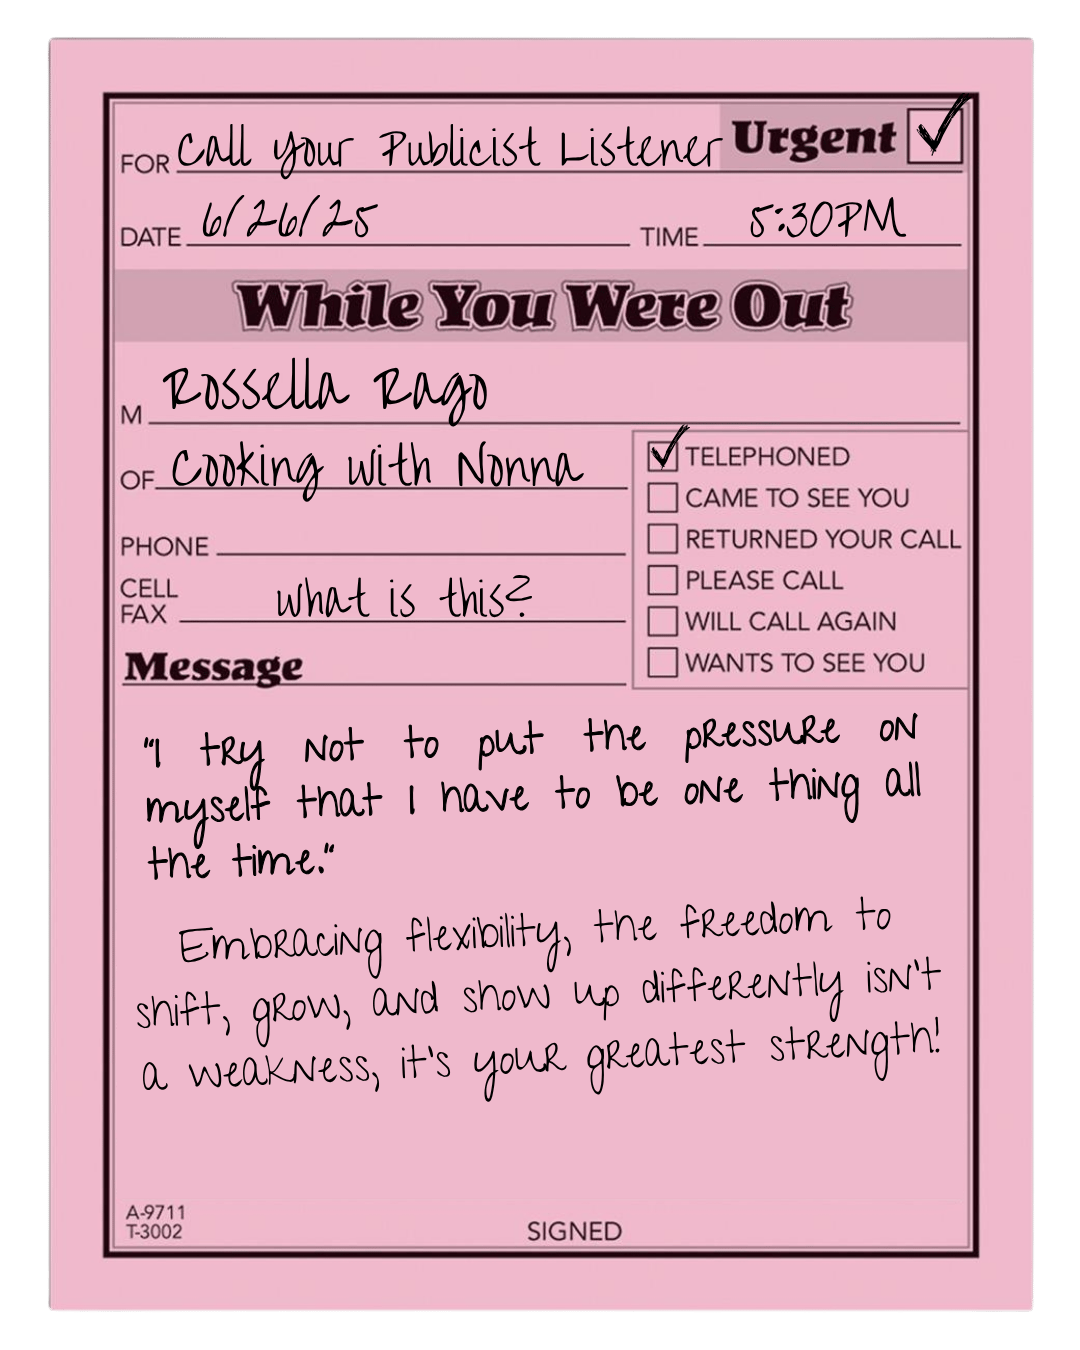 FOR Call your Publicist Listener Urgent
DATE 6/26/25 TIME 5:30PM
While You Were Out
M Rossella Rago
OF Cooking with Nonna
TELEPHONED
CAME TO SEE YOU
RETURNED YOUR CALL
PLEASE CALL
WILL CALL AGAIN
WANTS TO SEE YOU
PHONE
CELL
FAX what is this?
Message
"I try not to put the pressure on
myself that I have to be one thing all
the time."
Embracing flexibility, the freedom to
shift, grow, and show up differently isn't
a weakness, it's your greatest strength!
A-9711
T-3002
SIGNED